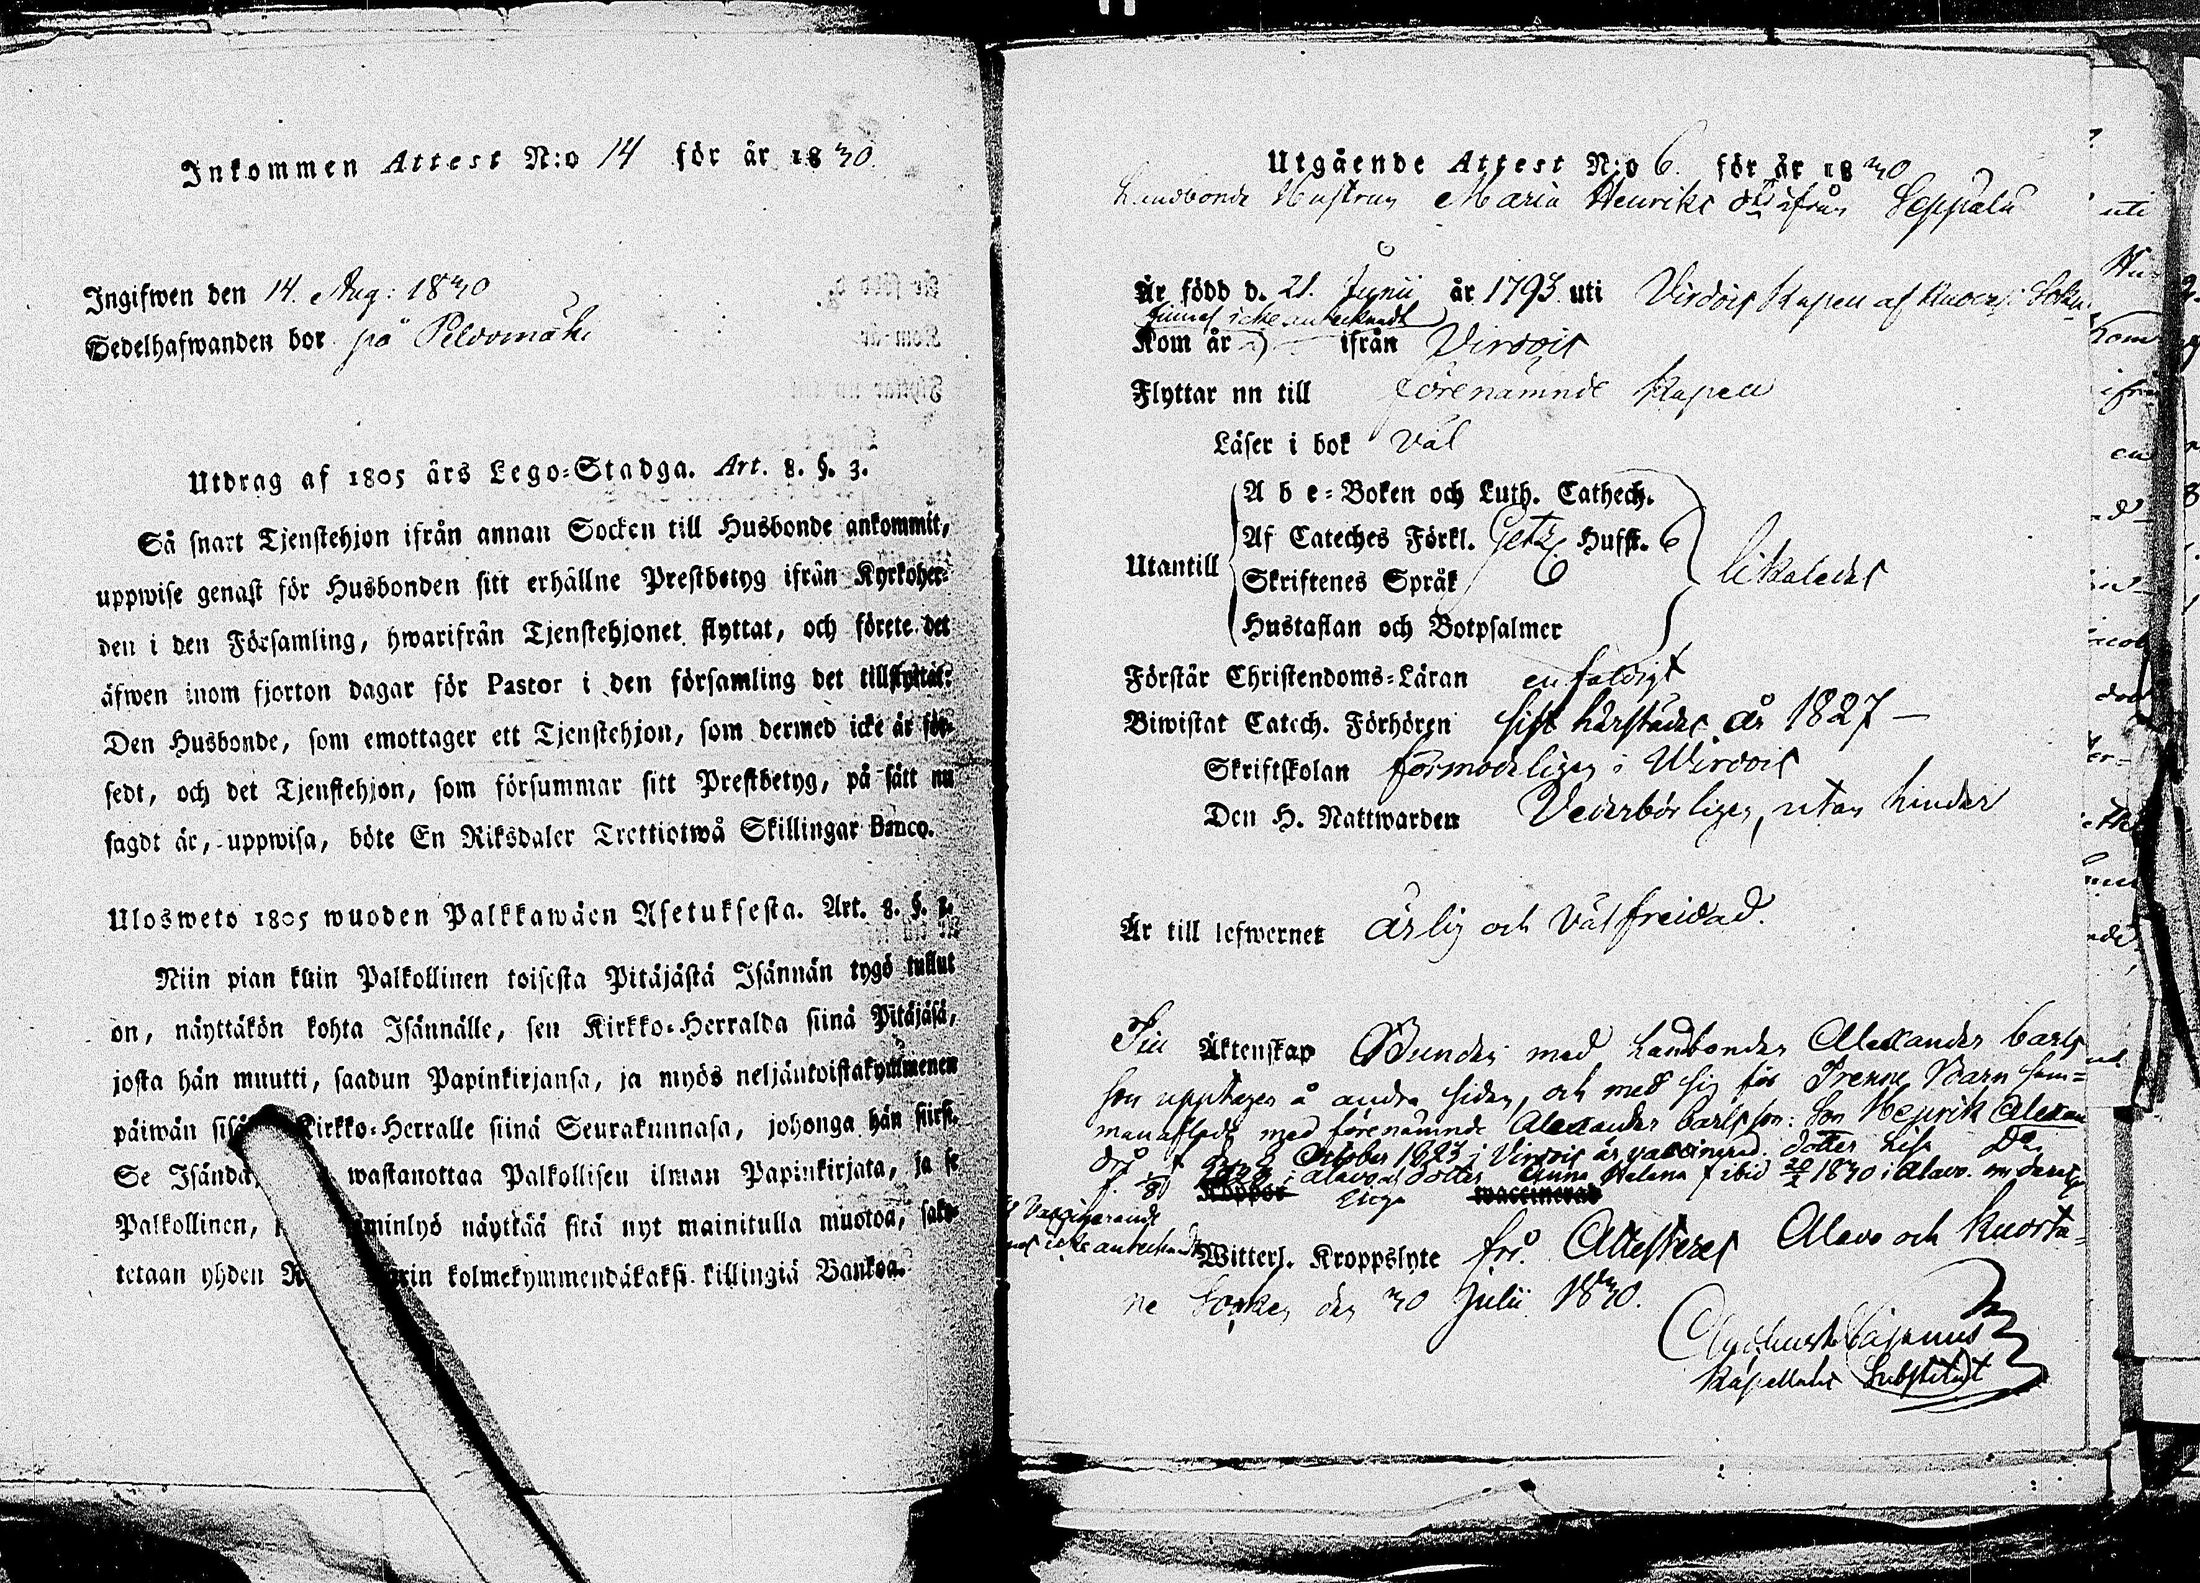 Inkommen Attest N:o 14 för år 1830.
Ingifwen den 14. Aug: 1830
Sedelhafwanden bor på Peldomäki
Utdrag af 1805 års Lego-Stadga. Art. 8. §. 3.
Så snart Tjenstehjon ifrån annan Socken till Husbonde ankommit,
uppwise genast för Husbonden sitt erhållne Prestbetyg ifrån Kyrkoher-
den i den Församling, hwarifrån Tjenstehjonet flyttat, och förete det
äfwen inom fjorton dagar för Pastor i den församling det tillflyttat:
Den Husbonde, som emottager ett Tjenstehjon, som dermed icke är för-
sedt, och det Tjenstehjon, som försummar sitt Prestbetyg, på sätt nu
sagdt är, uppwisa, böte En Riksdaler Trettiotwå Skillingar Banco.
Ulosweto 1805 wuoden Palkkawäen Asetuksesta. Art. 8. §. 3.
Niin pian kuin Palkollinen toisesta Pitäjästä Isännän tygö tullut
on, näyttäkön kohta Isännälle, sen Kirkko-Herralda siinä Pitäjäsä,
josta hän muutti, saadun Papinkirjansa, ja myös neljäntoistakymmenen
päiwän Kirkko-Herralle siinä Seurakunnasa, johonga hän siirsi.
Se Isändä, wastanottaa Palkollisen ilman Papinkirjata, ja se
Palkollinen, näyttää sitä nyt mainitulla muotoa, sako-
tetaan yhden kolmekymmendäkaksi killingiä Bankoa.
Utgående Attest N:o 6. för år 1830
Landbonde Hustrun Maria Henriks dtr ifrån Seppälä
Är född d. 21. Junii år 1793 uti Virdois Kapell af Ruovesi Sokn
finnes icke antecknadt
Kom år ifrån Virdois
Flyttar nu till förenämnde Kapell
Läser i bok väl
A b c-Boken och Luth. Cathech.
Af Cateches Förkl. Getz Hufst. 6
Utantill likaledes
Skriftenes Språk
Hustaflan och Botpsalmer
Förstår Christendoms-Läran enfaldigt
Biwistat Catech. Förhören sist härstädes år 1827 —
Skriftskolan förmodligen i Wirdois
Den H. Nattwarden Vederbörligen, utan hinder
Är till lefwernet ärlig och välfreidad.
Till Äktenskap Bunden med Landbonden Alexander Carls
son upptagen å andra sidan, och med sig för Trenne Barn sam-
manaflade med förenämnde Alexander Carlsson: Son Henrik Alexan
der October 1823 i Virdois är vaccinerad. dotter Lisa
i Alavo och dotter Anna Helena f ibid 1830 i Alavo.
Koppor Ega waccinerad
icke antecknadt
Witterl. Kroppslyte fri. Attesteras Alavo och Kuorta-
ne Socken den 30 Julii 1830.
Kapellans Substitut